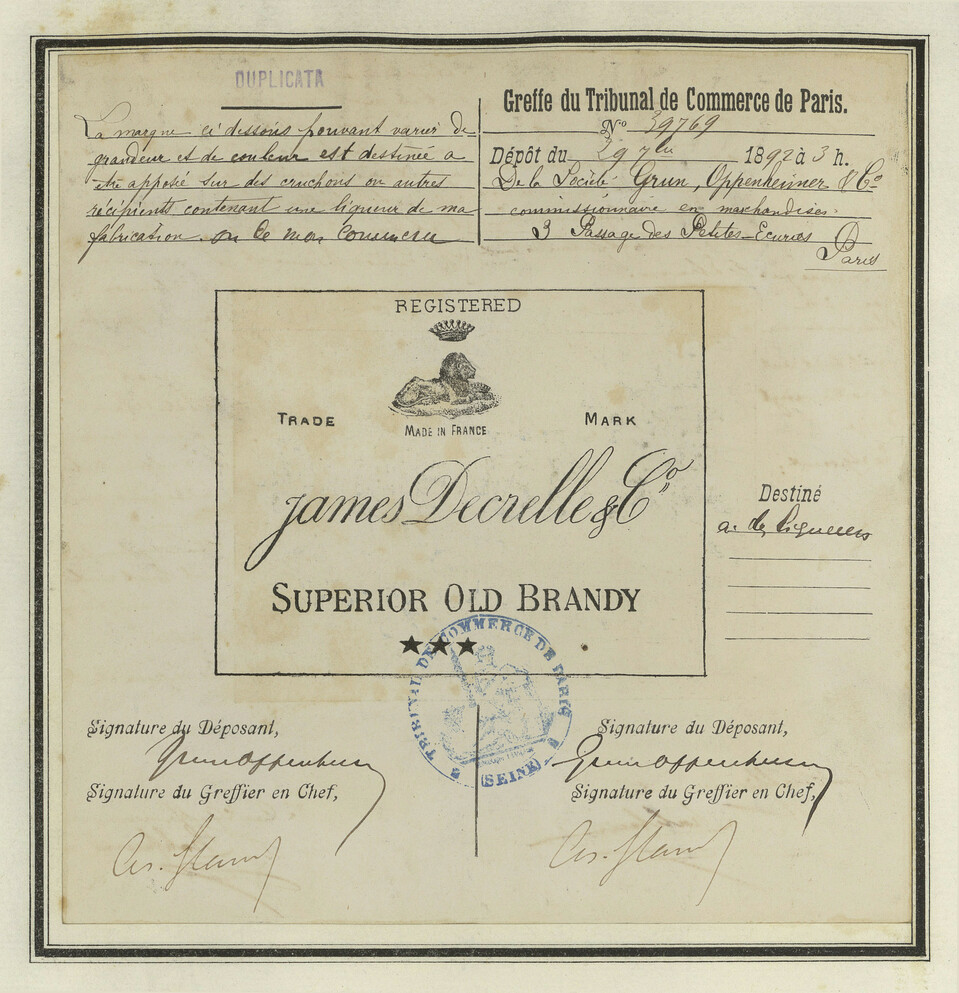 DUPLICATA
La marque ci dessous pouvant varier de
grandeur et de couleur est destinée a
etre apposée sur des cruchons ou autres
récipients contenant une liqueur de ma
fabrication ou de mon commerce
Greffe du Tribunal de Commerce de Paris.
N° 39769
Dépôt du 29 7bre 1892 à 3 h.
De la Société Grun, Oppenheimer & Co
commissionnaire en marchandises
3 Passage des Petites-Ecuries
Paris
REGISTERED
TRADE MARK
MADE IN FRANCE
James Decrelle & Co
SUPERIOR OLD BRANDY
Destiné
a. de liqueurs
TRIBUNAL DE COMMERCE DE PARIS
(SEINE)
Signature du Déposant, Signature du Déposant,
Grun Oppenheimer Grun Oppenheimer
Signature du Greffier en Chef, Signature du Greffier en Chef,